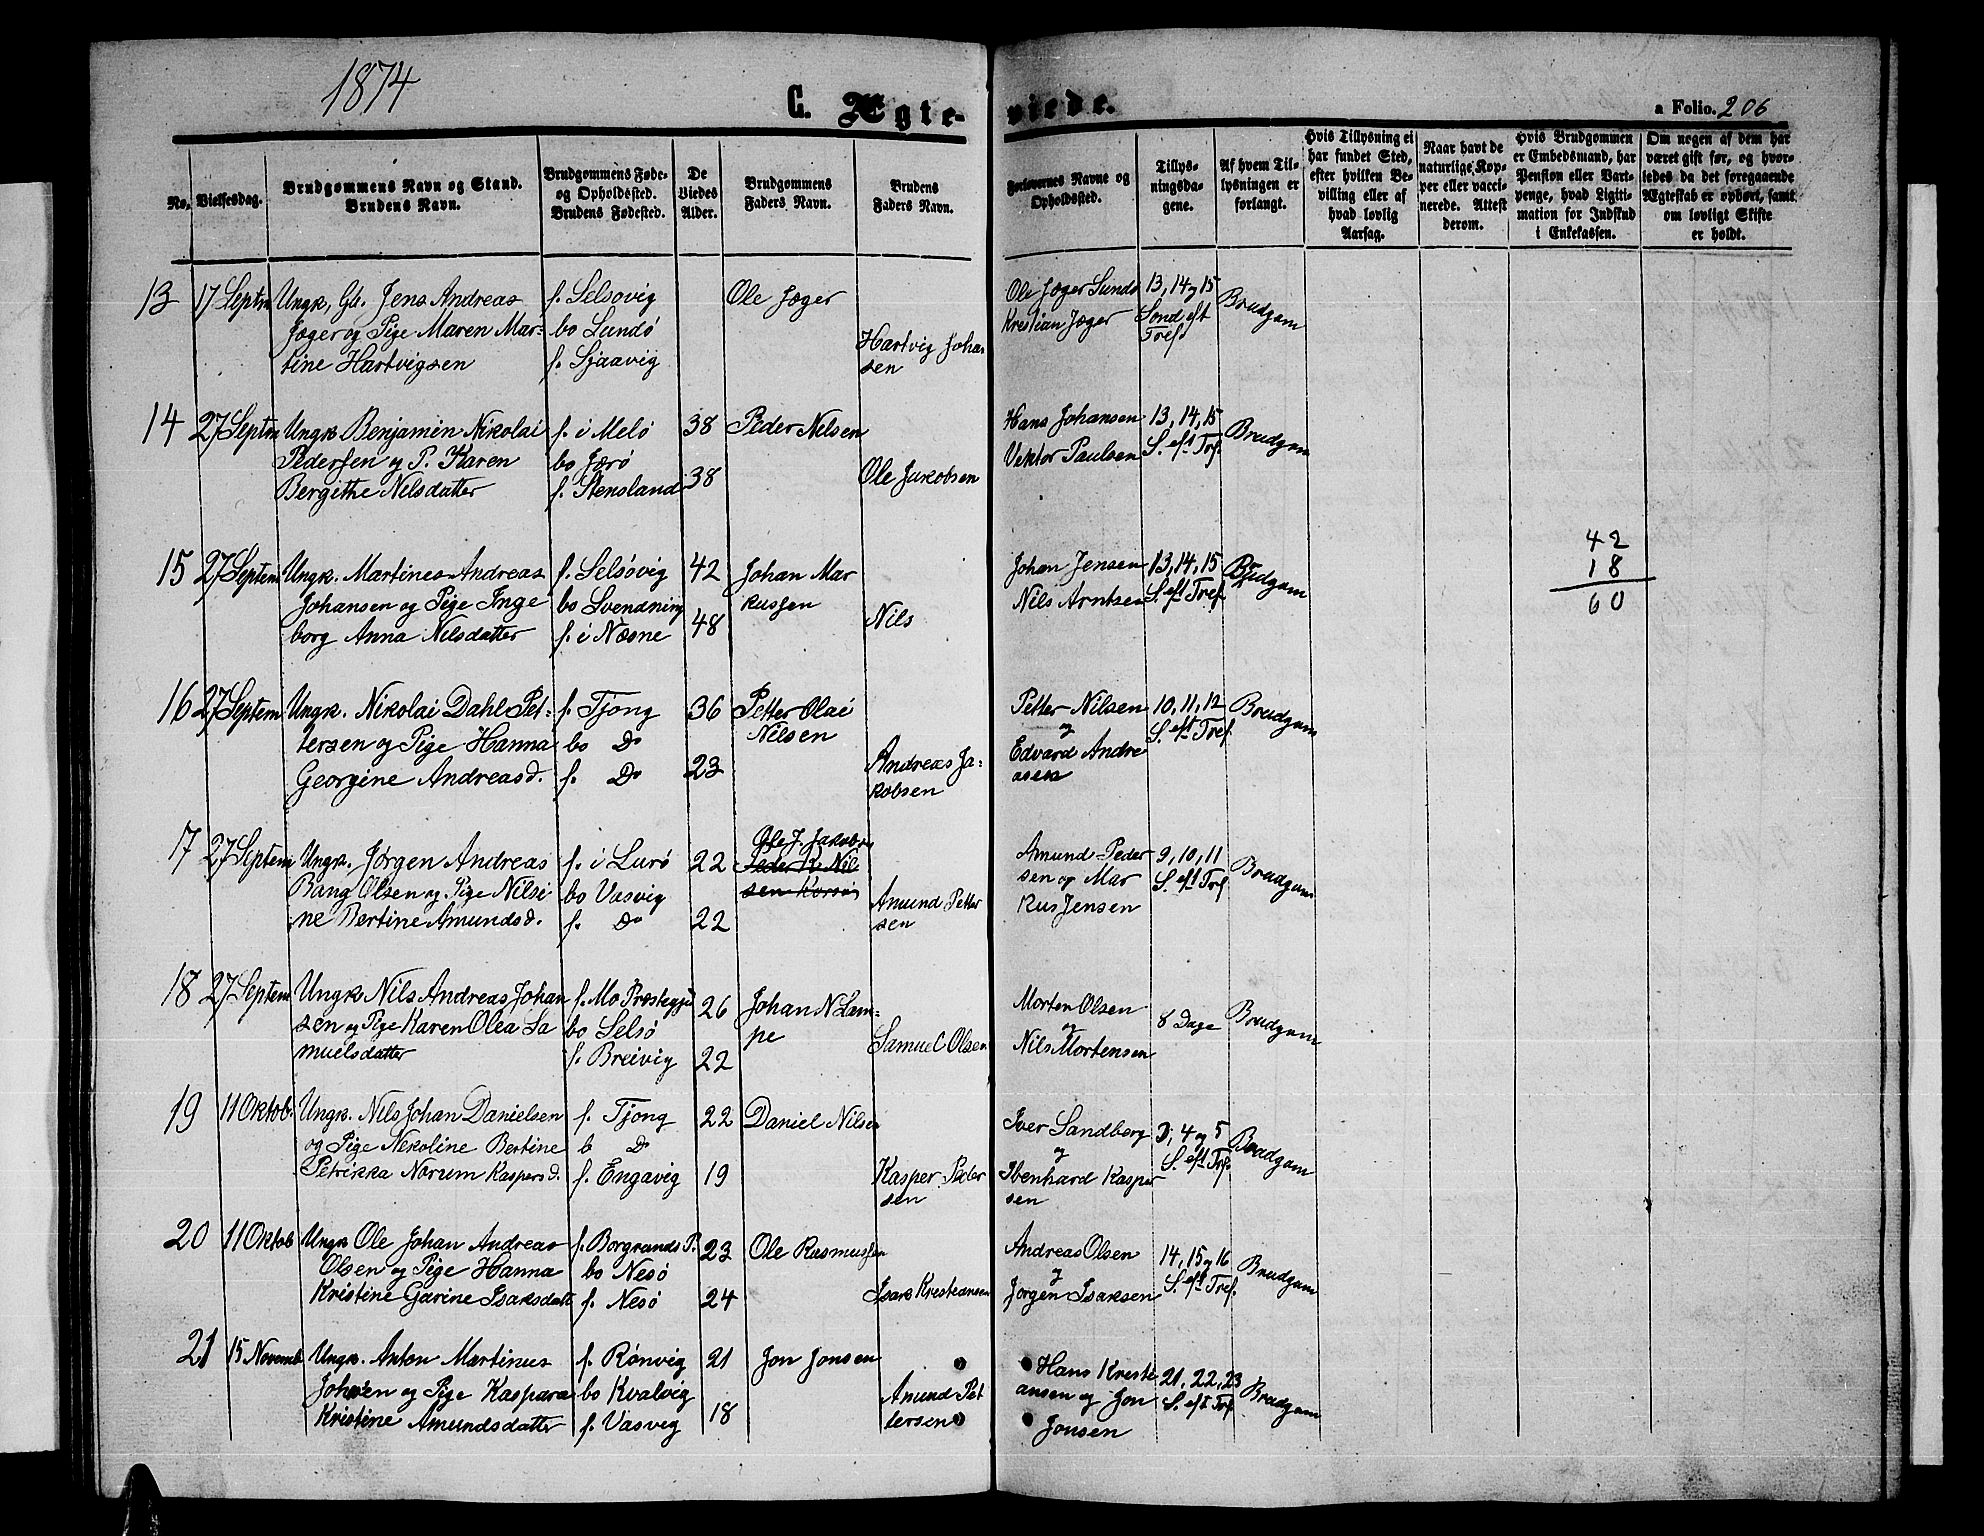 1874
C. Ægteviede.
a Folio. 206
No.
Vielsesdag.
Brudgommens Navn og Stand.
Brudens Navn.
Brudgommens Føde- og Opholdssted.
Brudens Fødested.
De Viedes Alder.
Brudgommens Faders Navn.
Brudens Faders Navn.
Forlovernes Navne og Opholdssted.
Tillysningsdagene.
Af hvem Tillysningen er forlangt.
Hvis Tillysning ei har fundet Sted, efter hvilken Bevilling eller af hvad lovlig Aarsag.
Naar havt de naturlige Kopper eller vaccinerede. Attest derom.
Hvis Brudgommen er Embedsmand, har Pension eller Vartpenge, hvad Ligitimation for Indskud i Enkekassen.
Om nogen af dem har været gift før, og hvorledes da det foregaaende Ægteskab er ophørt, samt om lovligt Skifte er holdt.
13 17 Septm Ungk, Gb. Jens Andreas f. Selsovig Ole Jæger Ole Jæger Lundø 13, 14 og 15 Brudgam
Jæger og Pige Maren Mar- bo Lundö Kristian Jæger Sond eft
tine Hartvigsen f. Sjaavig Hartvig Johansen Tref
14 27 Septm Ungk Benjamin Nikolai f. i Melö 38 Peder Nelsen Hans Johansen 13, 14, 15 Brudgam
Pedersen og P. Karen bo Jærö Vektor Paulsen S. eft Trf
Bergithe Nilsdatter f. Stensland 38 Ole Jakobsen
15 27 Septem Ungk. Martines Andreas f. Selsövig 42 Johan Mar Johan Jensen 13, 14, 15 Brudgam
Johansen og Pige Inge bo Svendning kussen Nils Arntsen S. eft Tref
borg Anna Nilsdatter f. i Næsne 48 Nils
42
18
60
16 27 Septem Ungk. Nikolai Dahl Pet- f. Tjong 36 Petter Olai Petter Nilsen 10, 11, 12 Brudgam
tersen og Pige Hanna bo Do Nilsen og S. eft Tref.
Georgine Andreasd. f. Do 23 Andreas Ja- Edvard Andre
kobsen asen
17 27 Septem Ungk. Jörgen Andreas f. i Lurö 22 Ole J. Jakobs Amund Peder 9, 10, 11 Brudgam
Bang Olsen og Pige Nilsi bo Vasvig sen og Mar S. eft Trf
ne Bertine Amundsd. f. Do 22 Amund Petter kus Jensen
sen
18 27 Septem Ungk Nils Andreas Johan f. Mo Prestegj. 26 Johan N Lam- Morten Olsen 8 Dage Brudgam
sen og Pige Karen Olea Sa bo Selsö pe og
muelsdatter f. Breivig 22 Samuel Olsen Nils Mortensen
19 11 Oktob. Ungk. Nils Johan Danielsen f. Tjong 22 Daniel Nilsen Iver Sandberg 3, 4 og 5 Brudgam
og Pige Nekoline Bertine b Do og S. eft Trf.
Petrikka Norum Kaspersd. f. Engavig 19 Kasper Peder Ibenhard Kasper
sen sen
20 11 Oktob Ungk Ole Johan Andreas f. Borgrunds P. 23 Ole Rasmussen Andreas Olsen 14, 15 og 16 Brudgam
Olsen og Pige Hanna bo Nesö og S. eft Tref.
Kristine Garine Isaksdatt f. Nesö 24 Isak Krestiansen Jörgen Isaksen
21 15 Novemb Ungk. Anton Martinus f. Rönvig 21 Jon Jonsen Hans Kresti 21, 22, 23 Brudgam
Johnsen og Pige Kaspara bo Kvalvig Amund Pet ansen og Jon S. eft Trf
Kristine Amundsdatter f. Vasvig 18 tersen Jonsen